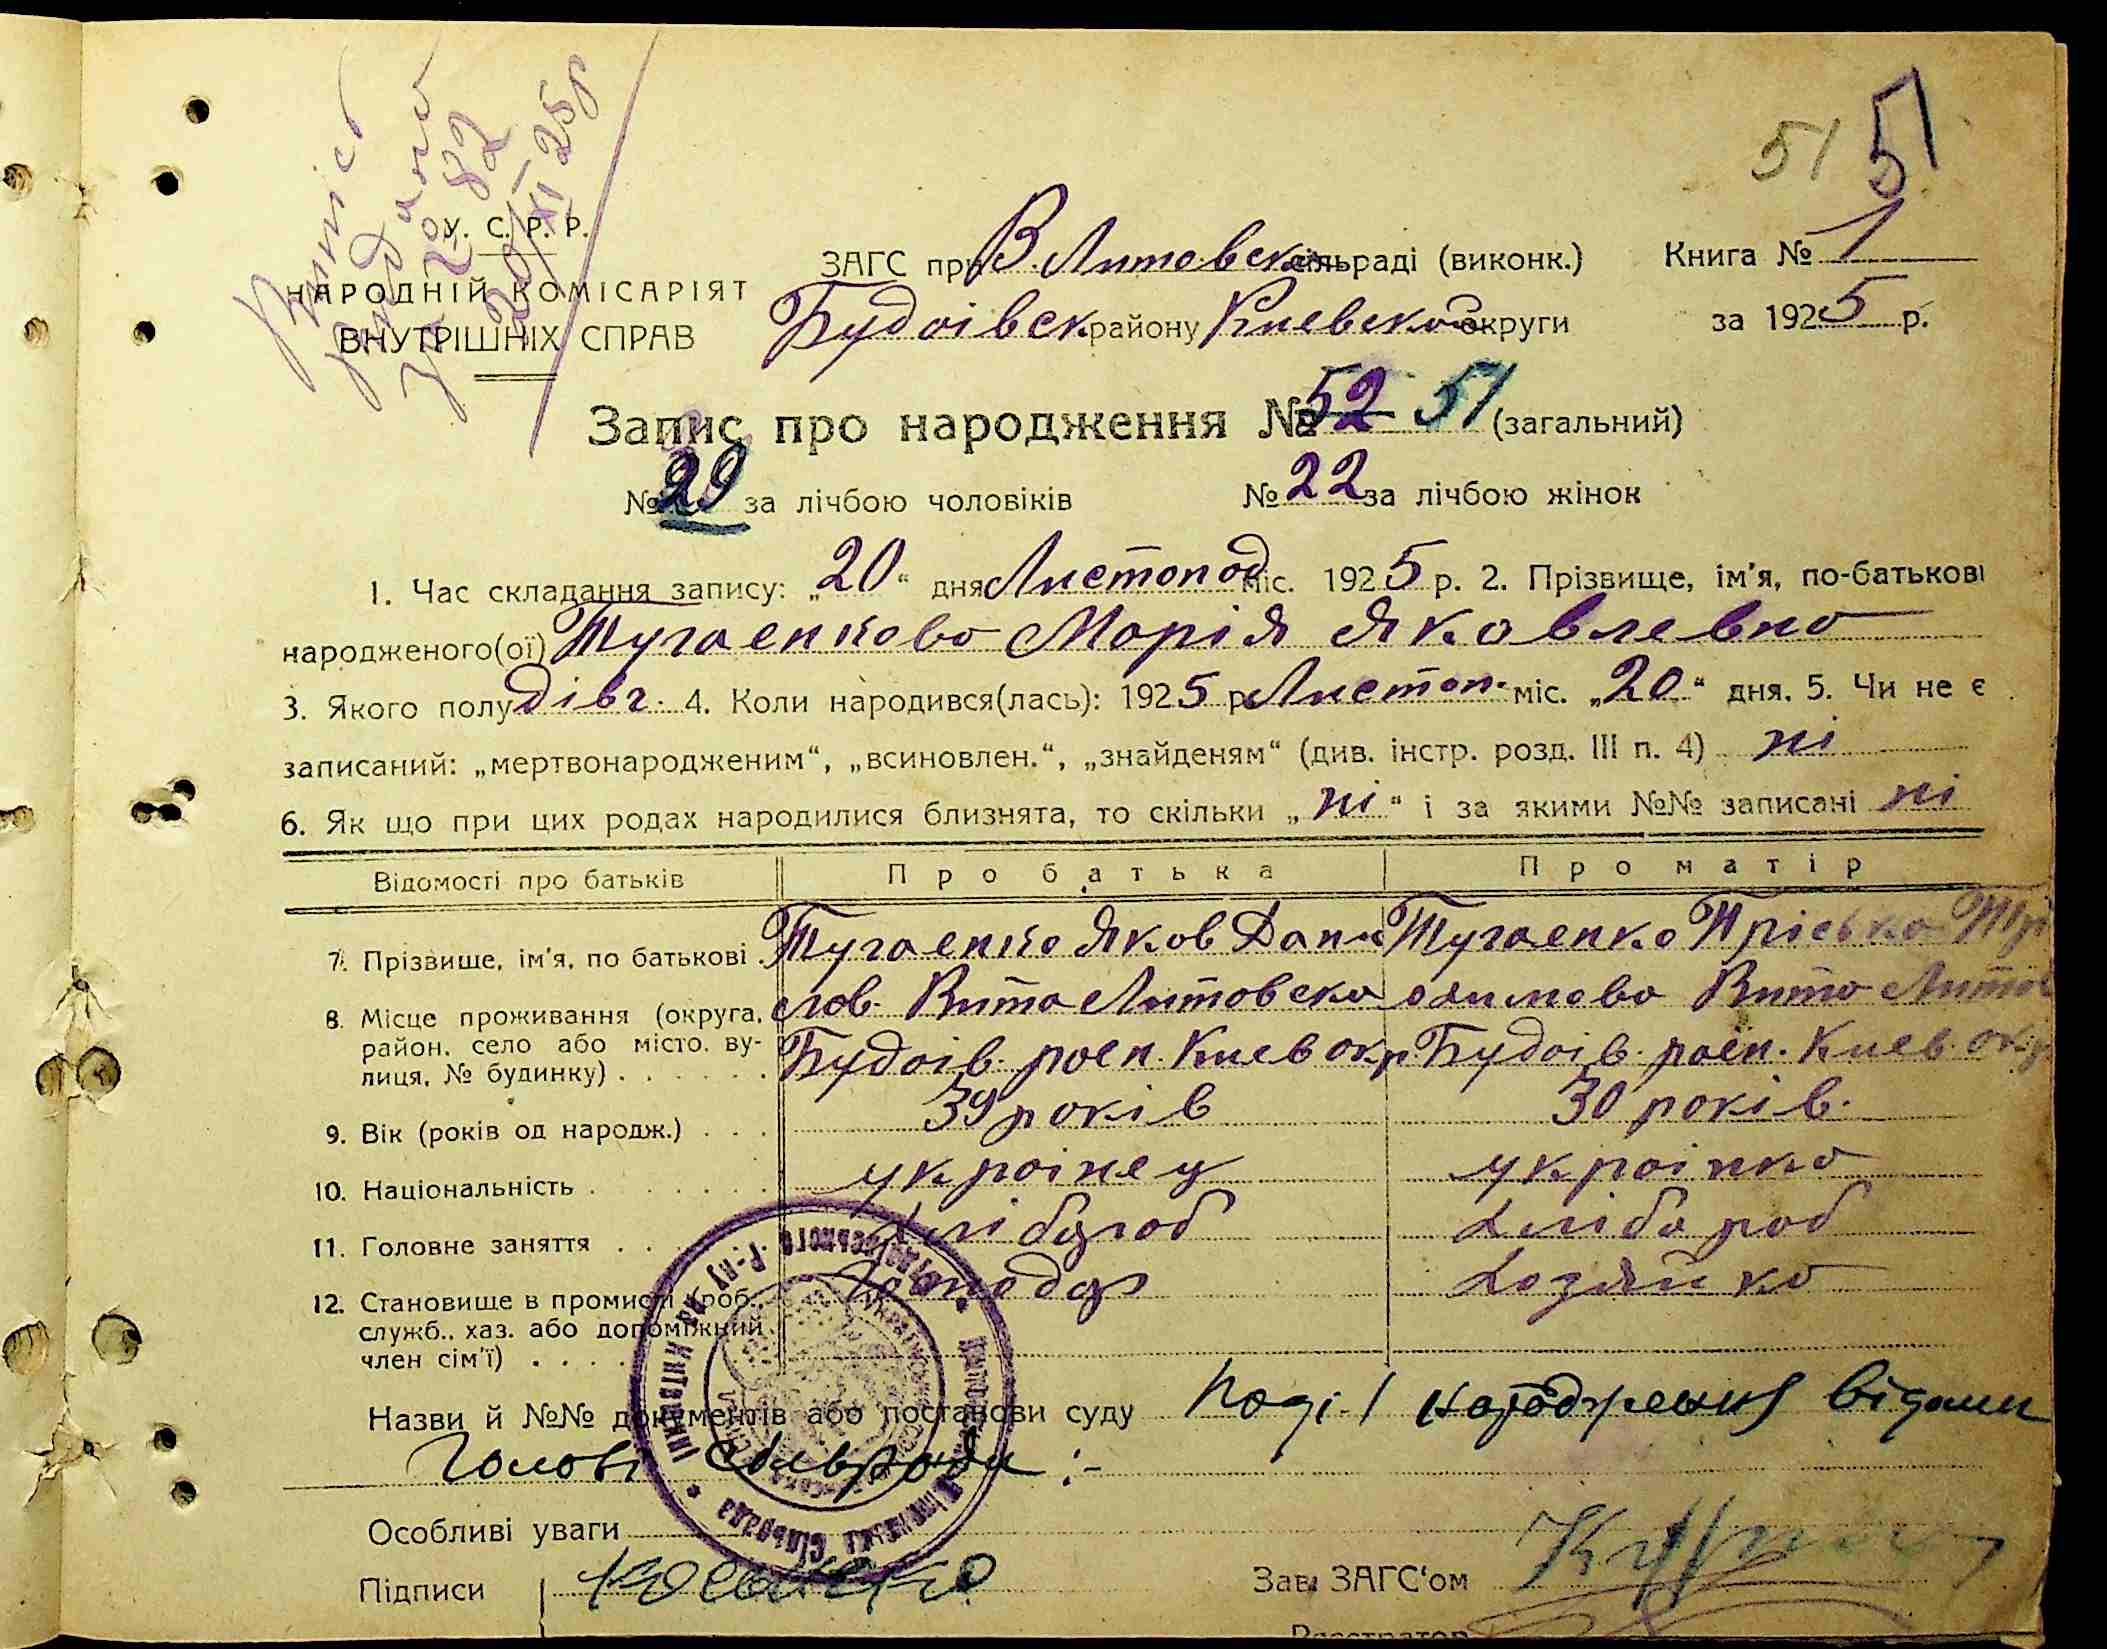 Випись
видано
за № 82
20/XI 25р
51 51
У. С. Р. Р.
НАРОДНІЙ КОМІСАРІЯТ
ВНУТРІШНІХ СПРАВ
ЗАГС при В. Литовскій сільраді (виконк.) Книга № 1
Будоівск. району Киевской округи за 1925 р.
Запис про народження № 52 51 (загальний)
№ 29 за лічбою чоловіків № 22 за лічбою жінок
1. Час складання запису: „20“ дня Листопад міс. 1925 р. 2. Прізвище, ім'я, по-батькові
народженого(ої) Тугаенкова Марія Яковлевна
3. Якого полу дівч. 4. Коли народився(лась): 1925 р. Листоп. міс. „20“ дня. 5. Чи не є
записаний: „мертвонародженим“, „всиновлен.“, „знайденям“ (див. інстр. розд. III п. 4) ні
6. Як що при цих родах народилися близнята, то скільки „ні“ і за якими №№ записані ні
Відомості про батьків Про батька Про матір
7. Прізвище, ім'я, по батькові . Тугаенко Яков Дани Тугаенко Пріська
8. Місце проживання (округа, лов. Вита Литовска Вита Литов
район, село або місто, ву- Будоів. раеп. Киев окр Будоів. раеп. Киев. окр
лиця, № будинку) . . . . . .
9. Вік (років од народж.) . . . 39 років 30 років.
10. Національність . . . . . . . україне ц українка
11. Головне заняття . . хлібороб хлібороб
12. Становище в промисл (роб., Господар Хозяйка
служб., хаз. або допоміжний
член сім'ї) . . . .
Назви й №№ документів або постанови суду Події народження відоми
Голові сільради :-
Особливі уваги
Підписи
Зав. ЗАГС'ом
Реєстратор